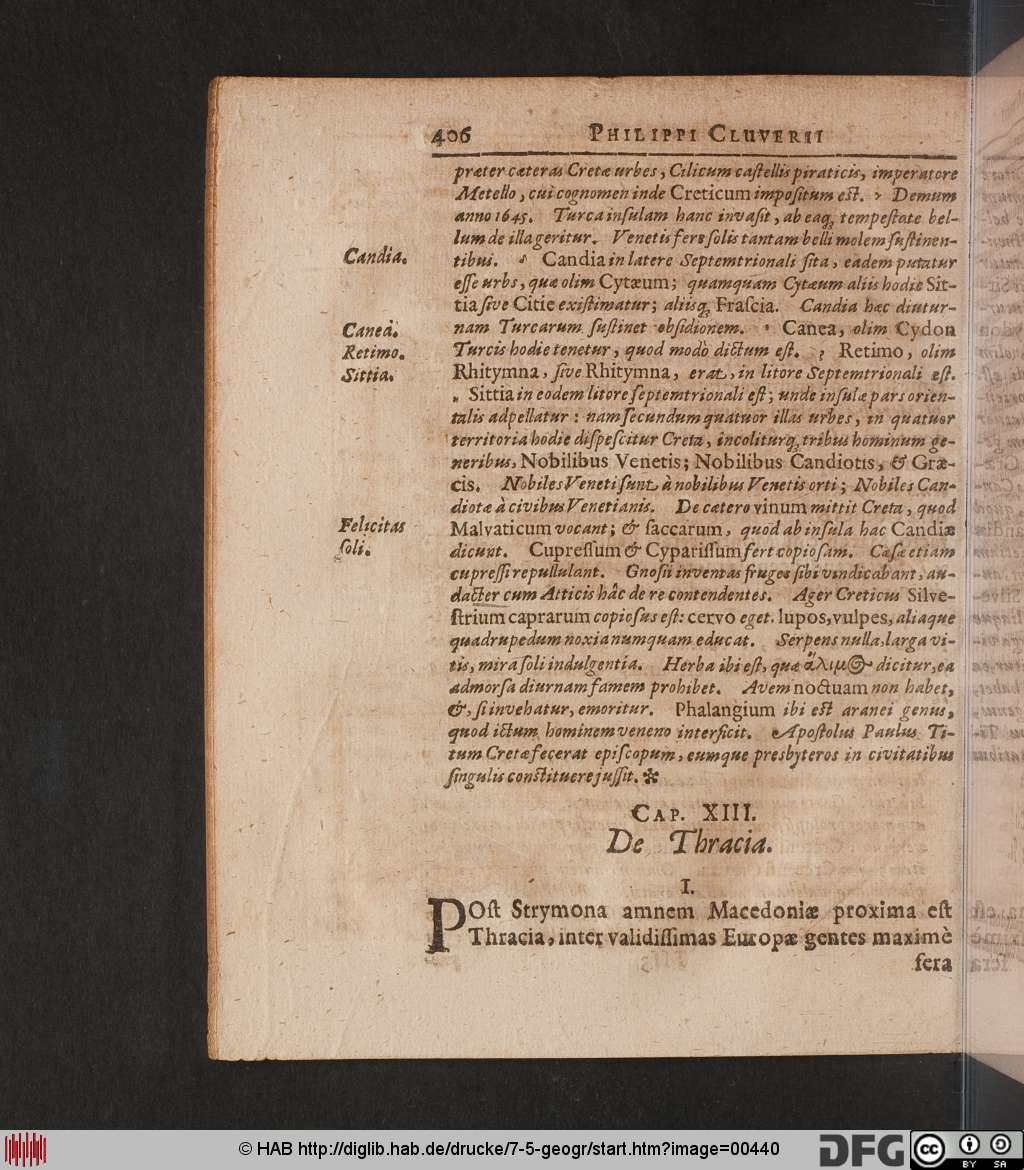 406 PHILIPPI CLUVERII
præter cæteras Cretæ urbes, Cilicum castellis piraticis, imperatore
Metello, cui cognomen inde Creticum impositum est. Demum
anno 1645. Turca insulam hanc invasit, ab eaq; tempestate bel-
lum de illa geritur. Venetis fere solis tantam belli molem sustinen-
Candia.
tibus. Candia in latere Septemtrionali sita, eadem putatur
esse urbs, quæ olim Cytæum; quamquam Cytæum aliis hodie Sit-
tia sive Citie existimatur; aliisq; Frascia. Candia hæc diutur-
Canea.
nam Turcarum sustinet obsidionem. Canea, olim Cydon
Retimo.
Turcis hodie tenetur, quod modò dictum est. Retimo, olim
Sittia.
Rhitymna, sive Rhitymna, erat, in litore Septemtrionali est.
Sittia in eodem litore septemtrionali est; unde insulæ pars orien-
talis adpellatur: nam secundum quatuor illas urbes, in quatuor
territoria hodie dispescitur Creta, incoliturq; tribus hominum ge-
neribus, Nobilibus Venetis; Nobilibus Candiotis, & Græ-
cis. Nobiles Veneti sunt à nobilibus Venetis orti; Nobiles Can-
diotæ à civibus Venetianis. De cætero vinum mittit Creta, quod
Felicitas
Malvaticum vocant; & saccarum, quod ab insula hac Candiæ
soli.
dicunt. Cupressum & Cyparissum fert copiosam. Cæsæ etiam
cupressi repullulant. Gnosii inventas fruges sibi vindicabant, au-
dacter cum Atticis hâc de re contendentes. Ager Creticus Silve-
strium caprarum copiosus est: cervo eget. lupos, vulpes, aliaque
quadrupedum noxia numquam educat. Serpens nulla, larga vi-
tis, mira soli indulgentia. Herba ibi est, quæ ἄλιμος dicitur, ea
admorsa diurnam famem prohibet. Avem noctuam non habet,
&, si invehatur, emoritur. Phalangium ibi est aranei genus,
quod ictum hominem veneno interficit. Apostolus Paulus Ti-
tum Cretæ fecerat episcopum, eumque presbyteros in civitatibus
singulis constituere jussit. *
CAP. XIII.
De Thracia.
I.
POst Strymona amnem Macedoniæ proxima est
Thracia, inter validissimas Europæ gentes maximè
fera
© HAB http://diglib.hab.de/drucke/7-5-geogr/start.htm?image=00440
DFG
cc BY SA